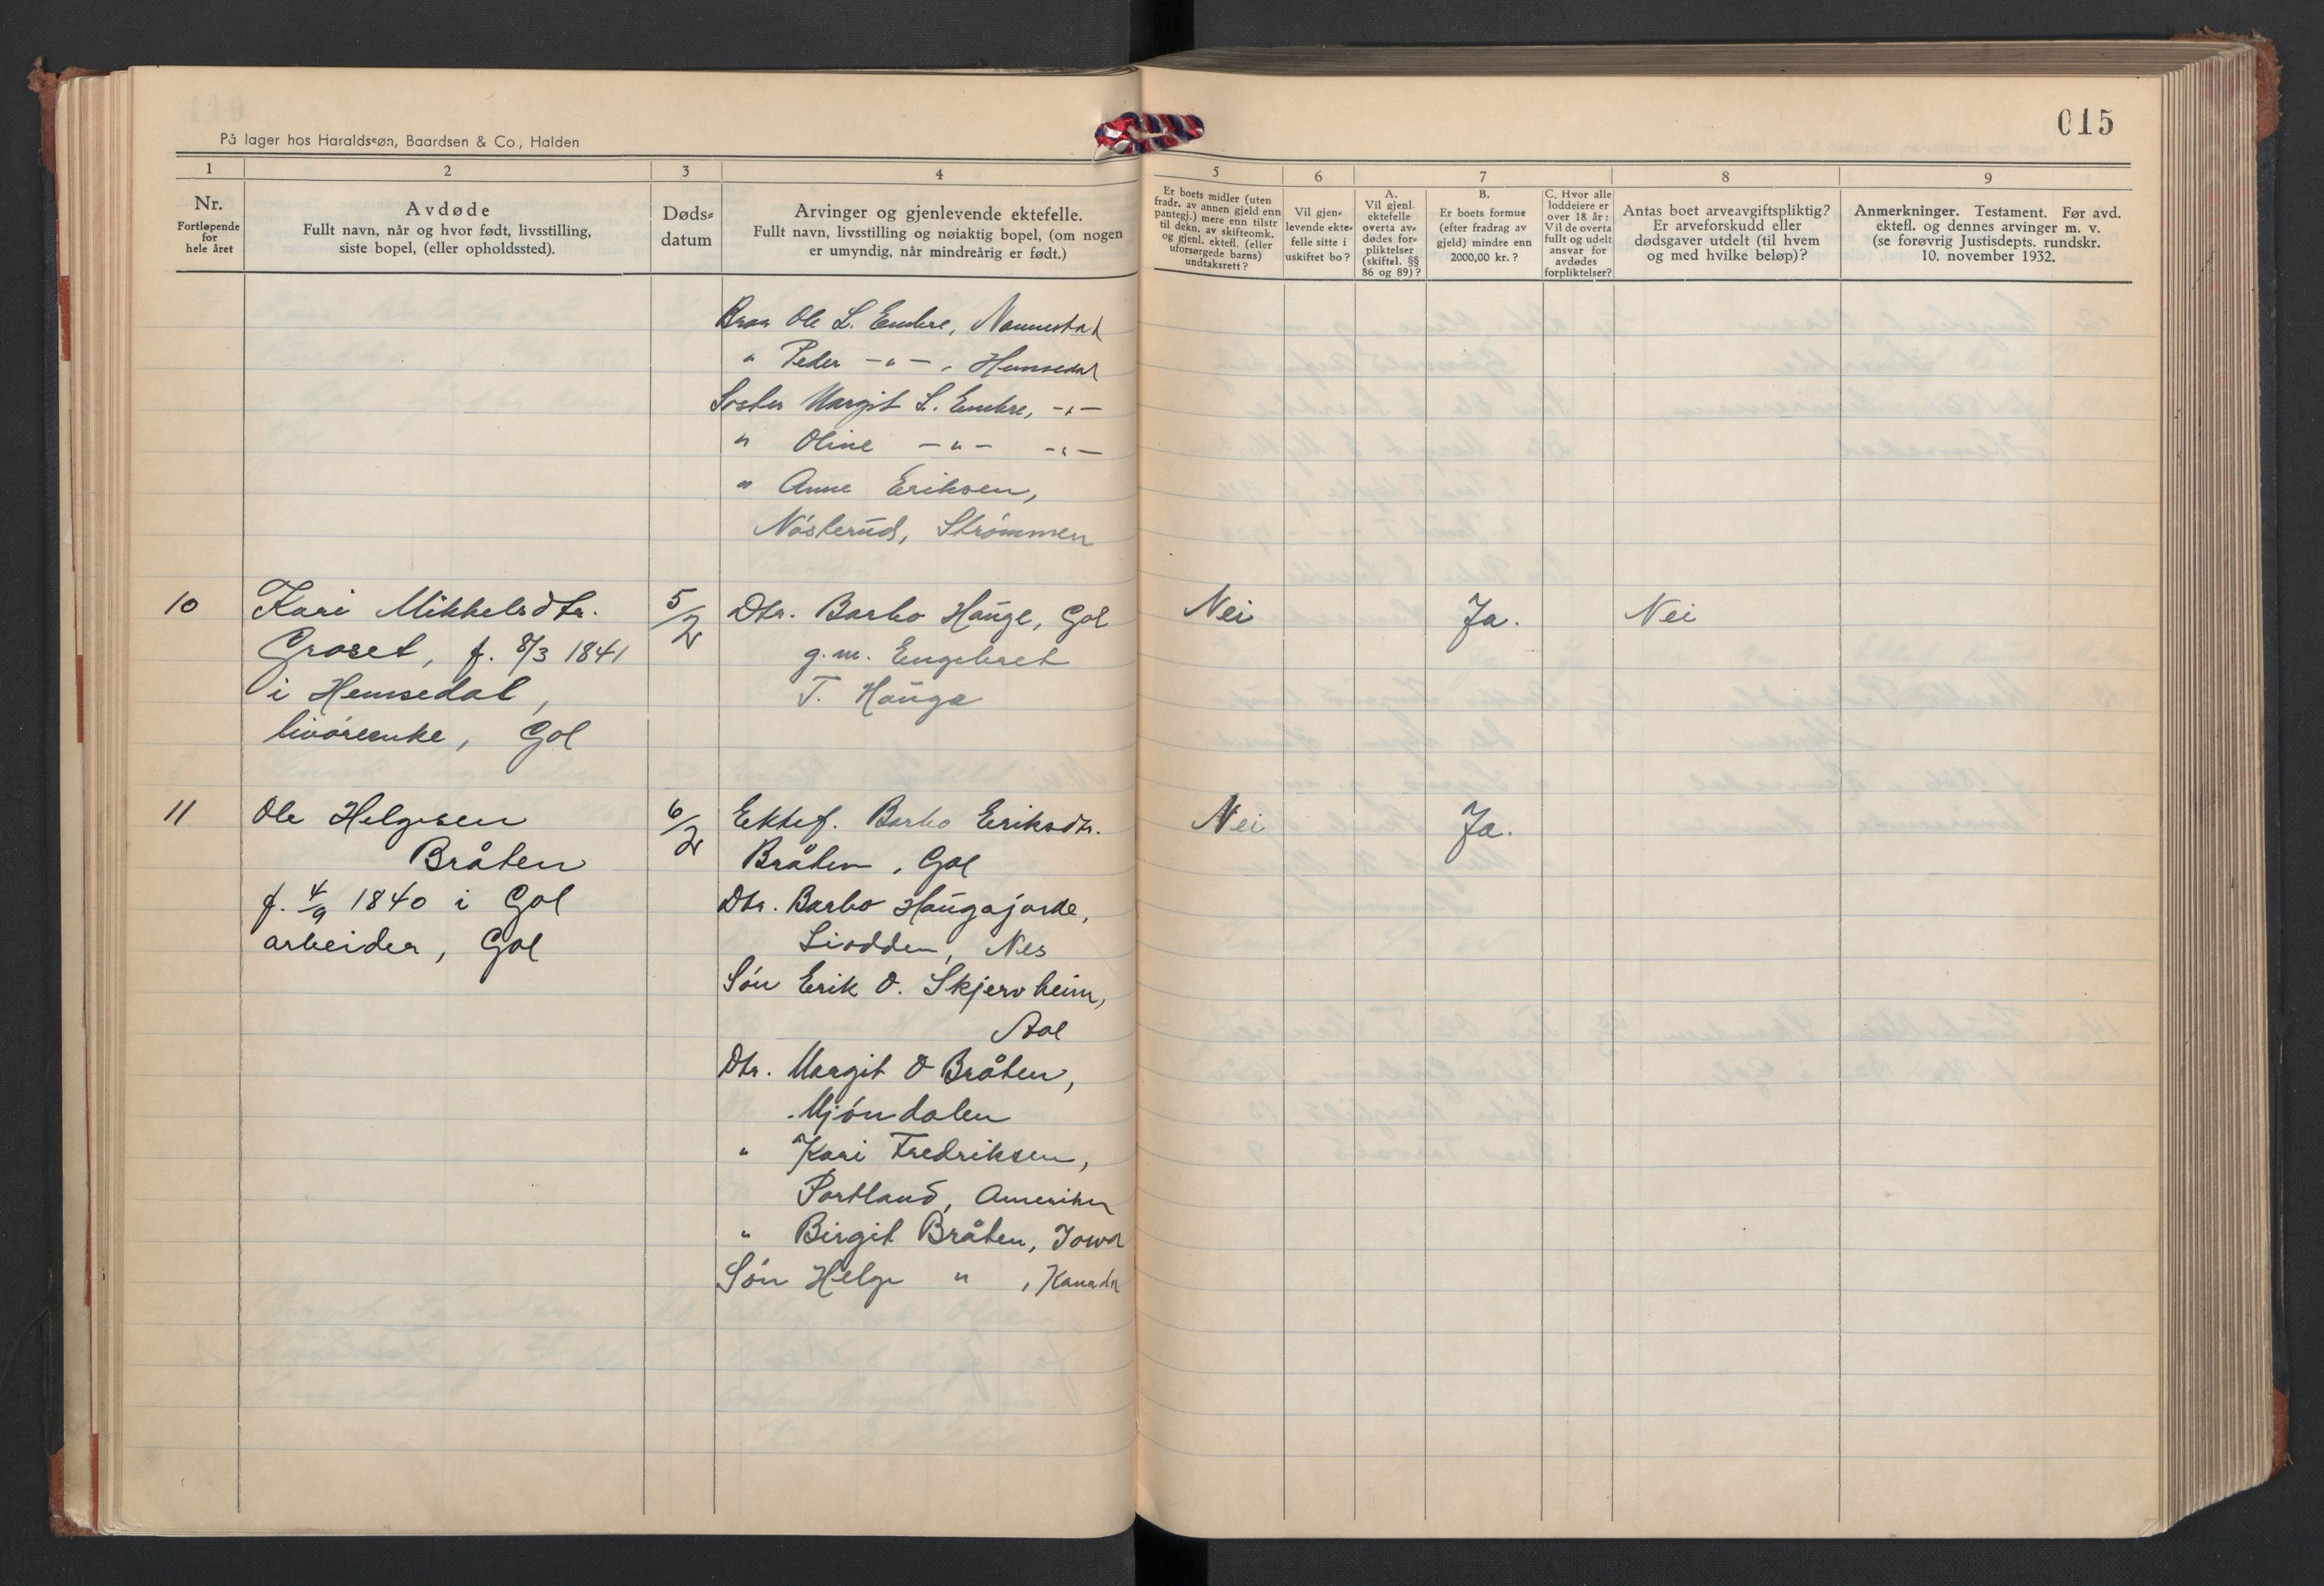 015
På lager hos Haraldssøn, Baardsen & Co, Halden
1 2 3 4 5 6 7 8 9
Nr.
Fortløpende
for
hele året
Avdøde
Fullt navn, når og hvor født, livsstilling,
siste bopel, (eller opholdssted).
Døds-
datum
Arvinger og gjenlevende ektefelle.
Fullt navn, livsstilling og nøiaktig bopel, (om nogen
er umyndig, når mindreårig er født.)
Er boets midler (uten
fradr. av annen gjeld enn
pantegj.) mere enn tilstr
til dekn. av skifteomk.
og gjenl. ektefl. (eller
uforsørgede barns)
undtaksrett?
Vil gjen-
levende ekte-
felle sitte i
uskiftet bo?
A.
Vil gjenl.
ektefelle
overta av-
dødes for-
pliktelser
(skiftel. §§
86 og 89)?
B.
Er boets formue
(efter fradrag av
gjeld) mindre enn
2000,00 kr.?
C. Hvor alle
loddeiere er
over 18 år:
Vil de overta
fullt og udelt
ansvar for
avdødes
forpliktelser?
Antas boet arveavgiftspliktig?
Er arveforskudd eller
dødsgaver utdelt (til hvem
og med hvilke beløp)?
Anmerkninger. Testament. Før avd.
ektefl. og dennes arvinger m. v.
(se forøvrig Justisdepts. rundskr.
10. november 1932.
Bror Ole L. Embre, Nannestad
" Peder -"- , Hemsedal
Søster Margit L. Embre, -"-
" Oline -"- -"-
" Anne Eriksen,
Nøsterud, Strømmen
10 Kari Mikkelsdtr. 5/2 Dtr. Barbo Hauge, Gol Nei Ja. Nei
Groset, f. 8/3 1841 g.m. Engebret
i Hemsedal, T. Hauga
livøreenke, Gol
11 Ole Helgesen 6/2 Ektef. Barbo Eriksdtr. Nei Ja.
Bråten Bråten, Gol
f. 4/9 1840 i Gol Dtr. Barbo Haugajorde,
arbeider, Gol Liodden, Nes
Søn Erik O. Skjervheim,
Aal
Dtr. Margit O Bråten,
Mjøndalen
" Kari Fredriksen,
Portland, Amerika
" Birgit Bråten, Iowa
Søn Helge " , Kanada